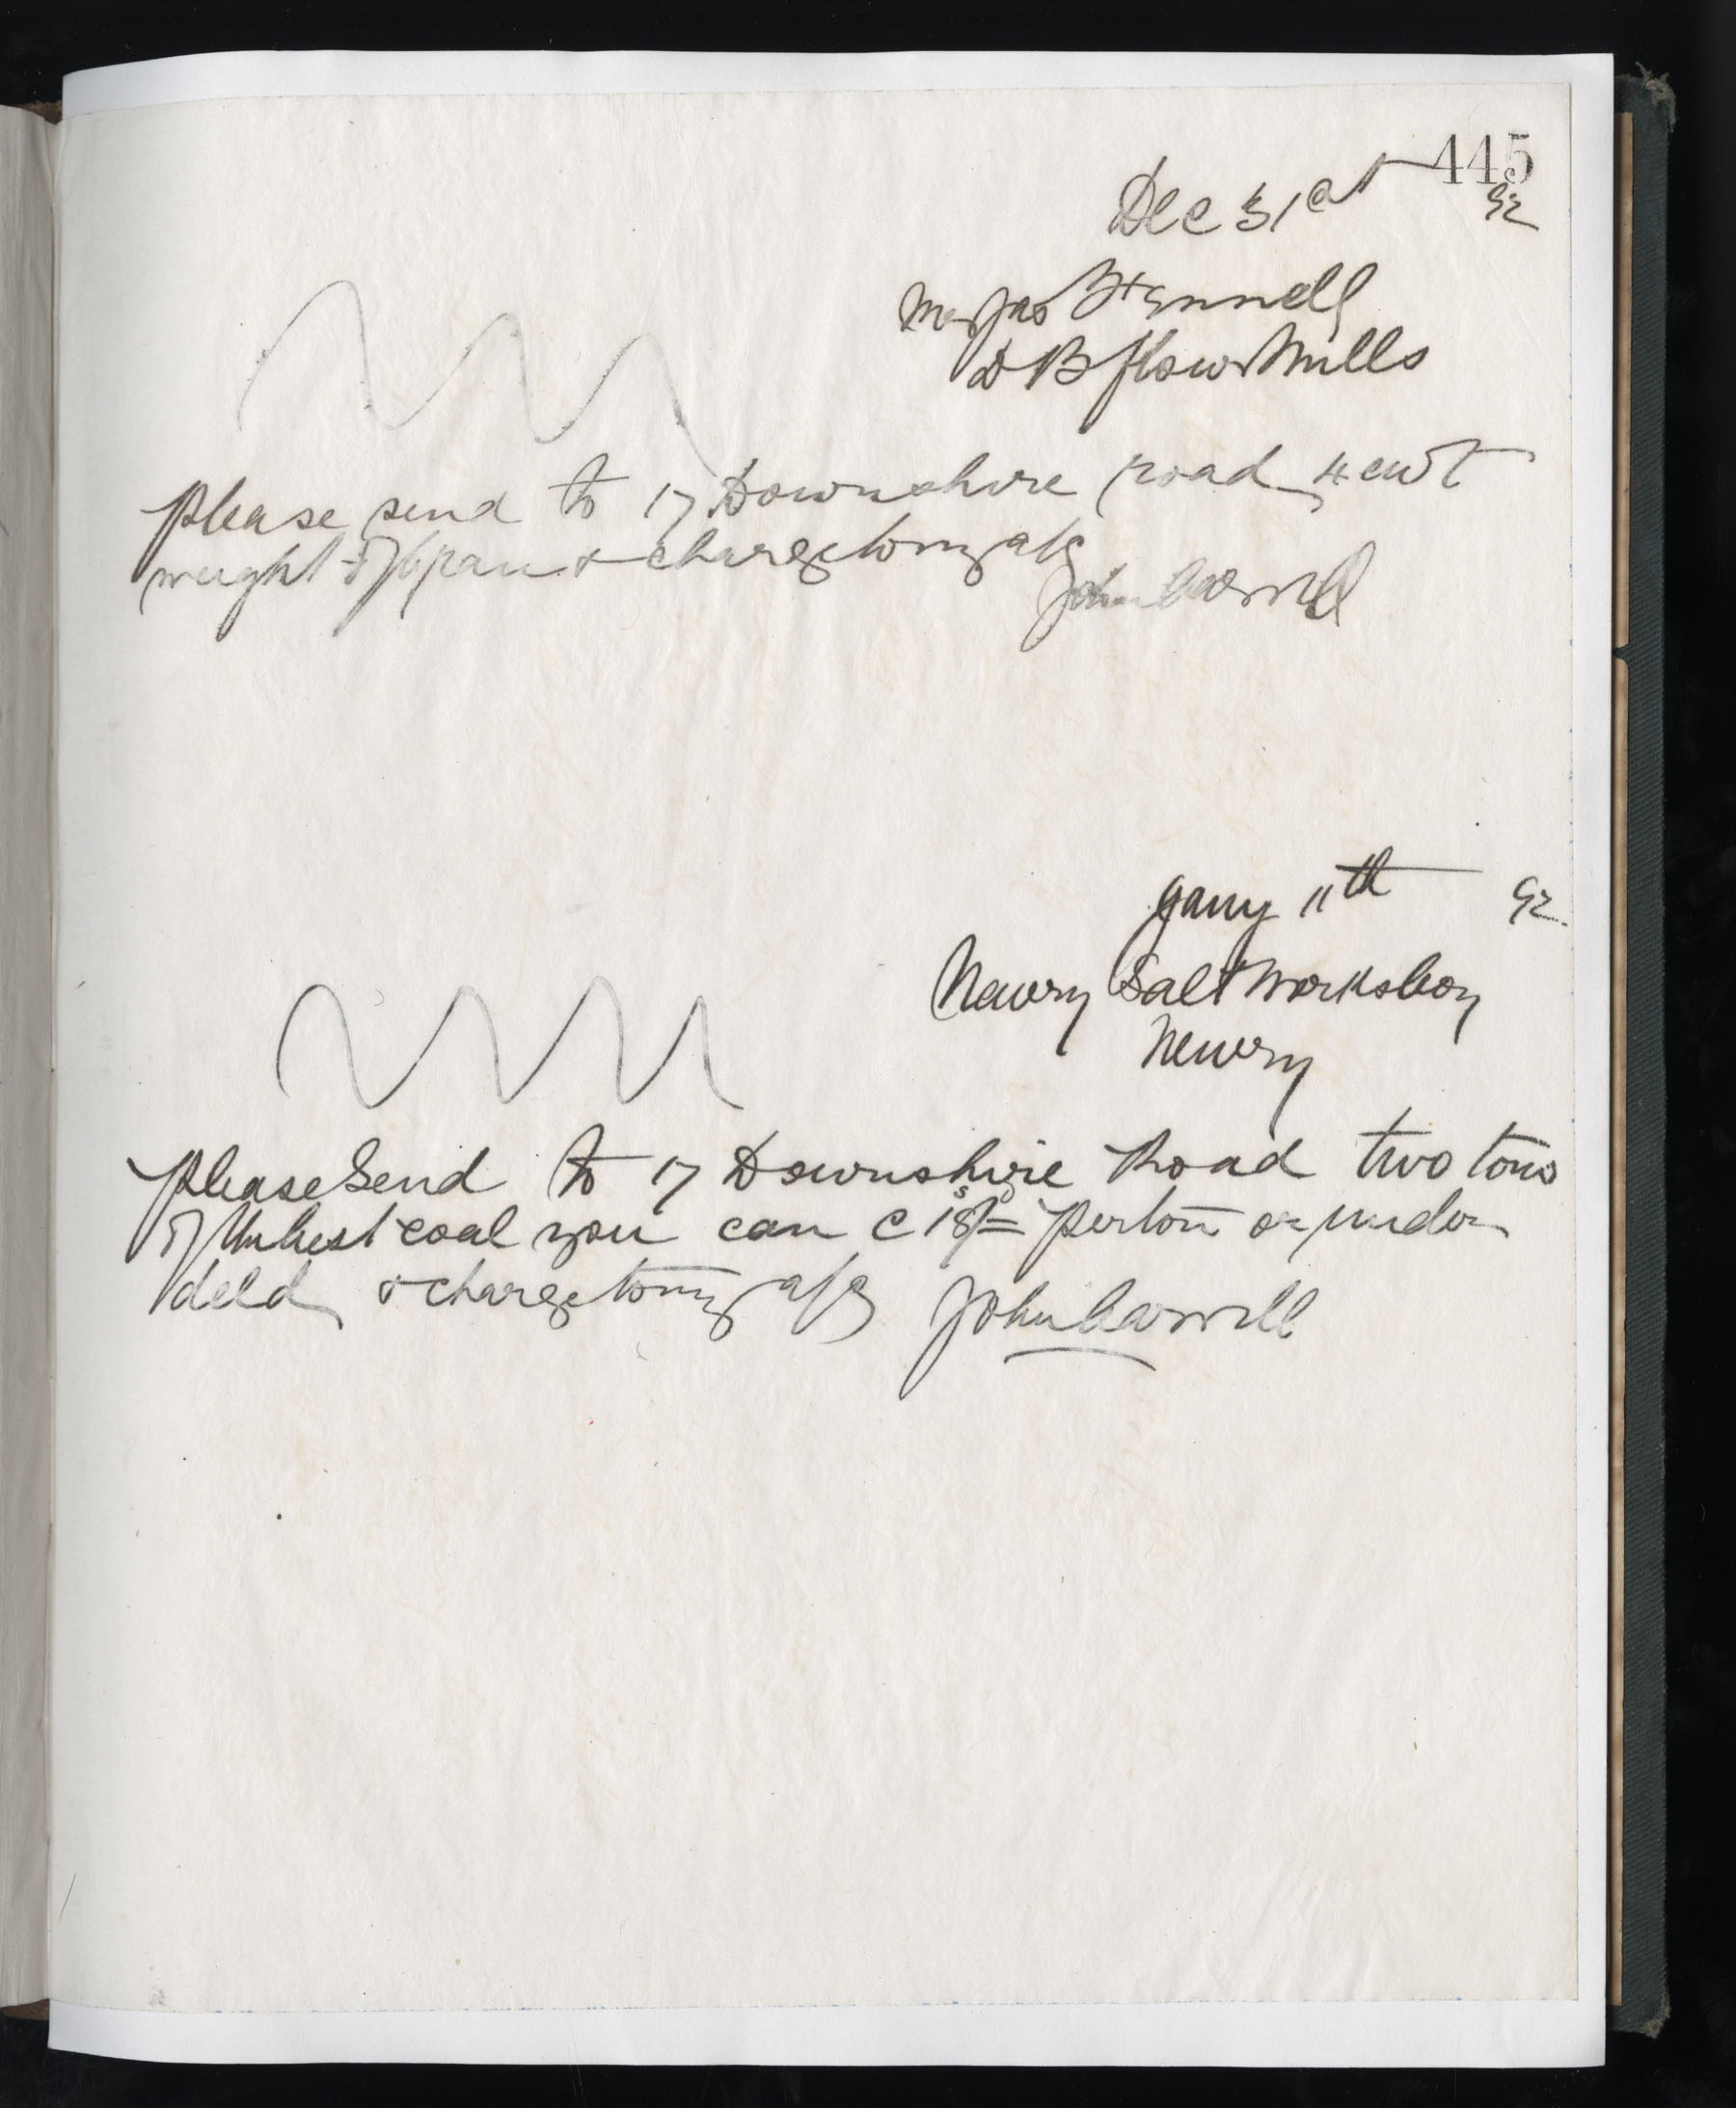 445
Dec 31st 92
Jas
D B flour Mills
Please send to 17 Downshire road 4 cwt
weight of & charge to my a/c
John Carroll
Jany 11th 92
Newry Salt Works Coy
Newry
Please Send to 17 Downshire Road two tons
of the best coal you can @ 18s/= per ton or under
deld & charge to my a/c John Carroll